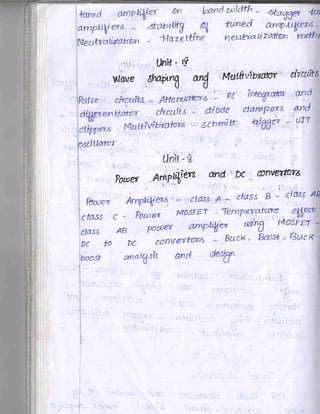 taned amplifier on band width - stagger
amplifiers - stability of tuned amplifiers.
Neutralization - Hazeltine neutralization
Unit - IV
Wave shaping and Multivibrator circuits
Pulse circuits - Attenuators - RC integrator and
differentiator circuits - diode clampers and
clippers - Multivibrators - schmitt trigger - UJT
oscillator
Unit - V
Power Amplifiers and DC convertors
Power Amplifiers - class A - class B - class AB
class C - Power MOSFET - Temperature effect
class AB power amplifier using MOSFET -
DC to DC convertors - Buck, Boost, Buck -
boost analysis and design